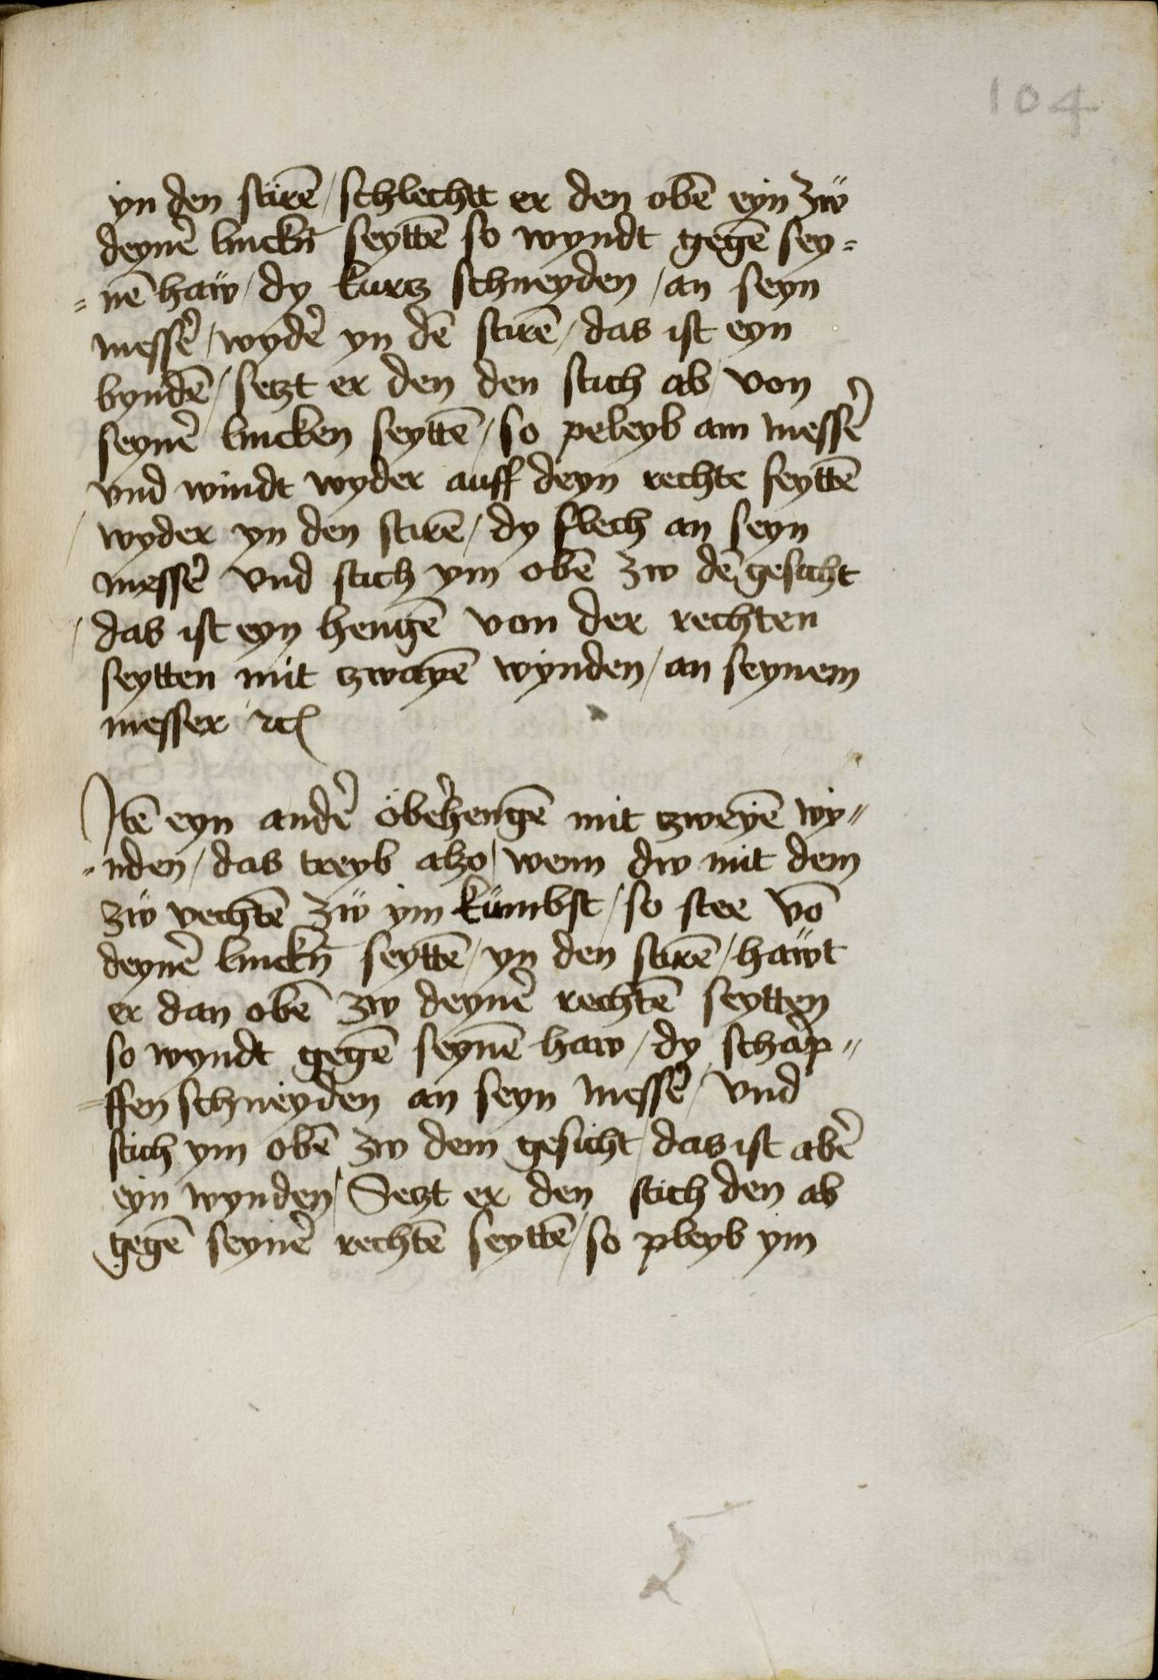 104
yn den stirē / schlechtt er den obē eyn zẅ
deynē linckñ seyttē so wyndt gegē sey=
=nē haẅ / dy kurcz schneyden / an seyn
messē / wydē yn dē stirē / das ist eyn
byndē / seczt er den den stich ab von
seynē lincken seyttē / so peleyb am messē
vnd windt wyder auff deyn rechte seyttē
wyder yn den stirē / dy flech an seyn
messē vnd stich ym obē zw dē gesicht
/ das ist eyn hengē von der rechten
seytten mit zwayē wynden / an seynem
messer ⁊cͣ
Itē eyn andē öbēhengē mit zweyē wy=
=nden / das treyb alzo / wenn dw mit dem
zẅ vechtē zẅ ym kümbst / so stee vō
deynē linckñ seyttē / yn den stirē / haẅt
er dan obē zw deynē rechtē seytten
so wyndt gegē seynē haw / dy scharp=
=ffen schneyden an seyn messē / vnd
stich ym obē zw dem gesicht / das ist abē
eyn wynden / Seczt er den stich den ab
gegē seynē rechtē seyttē / so pleyb ym